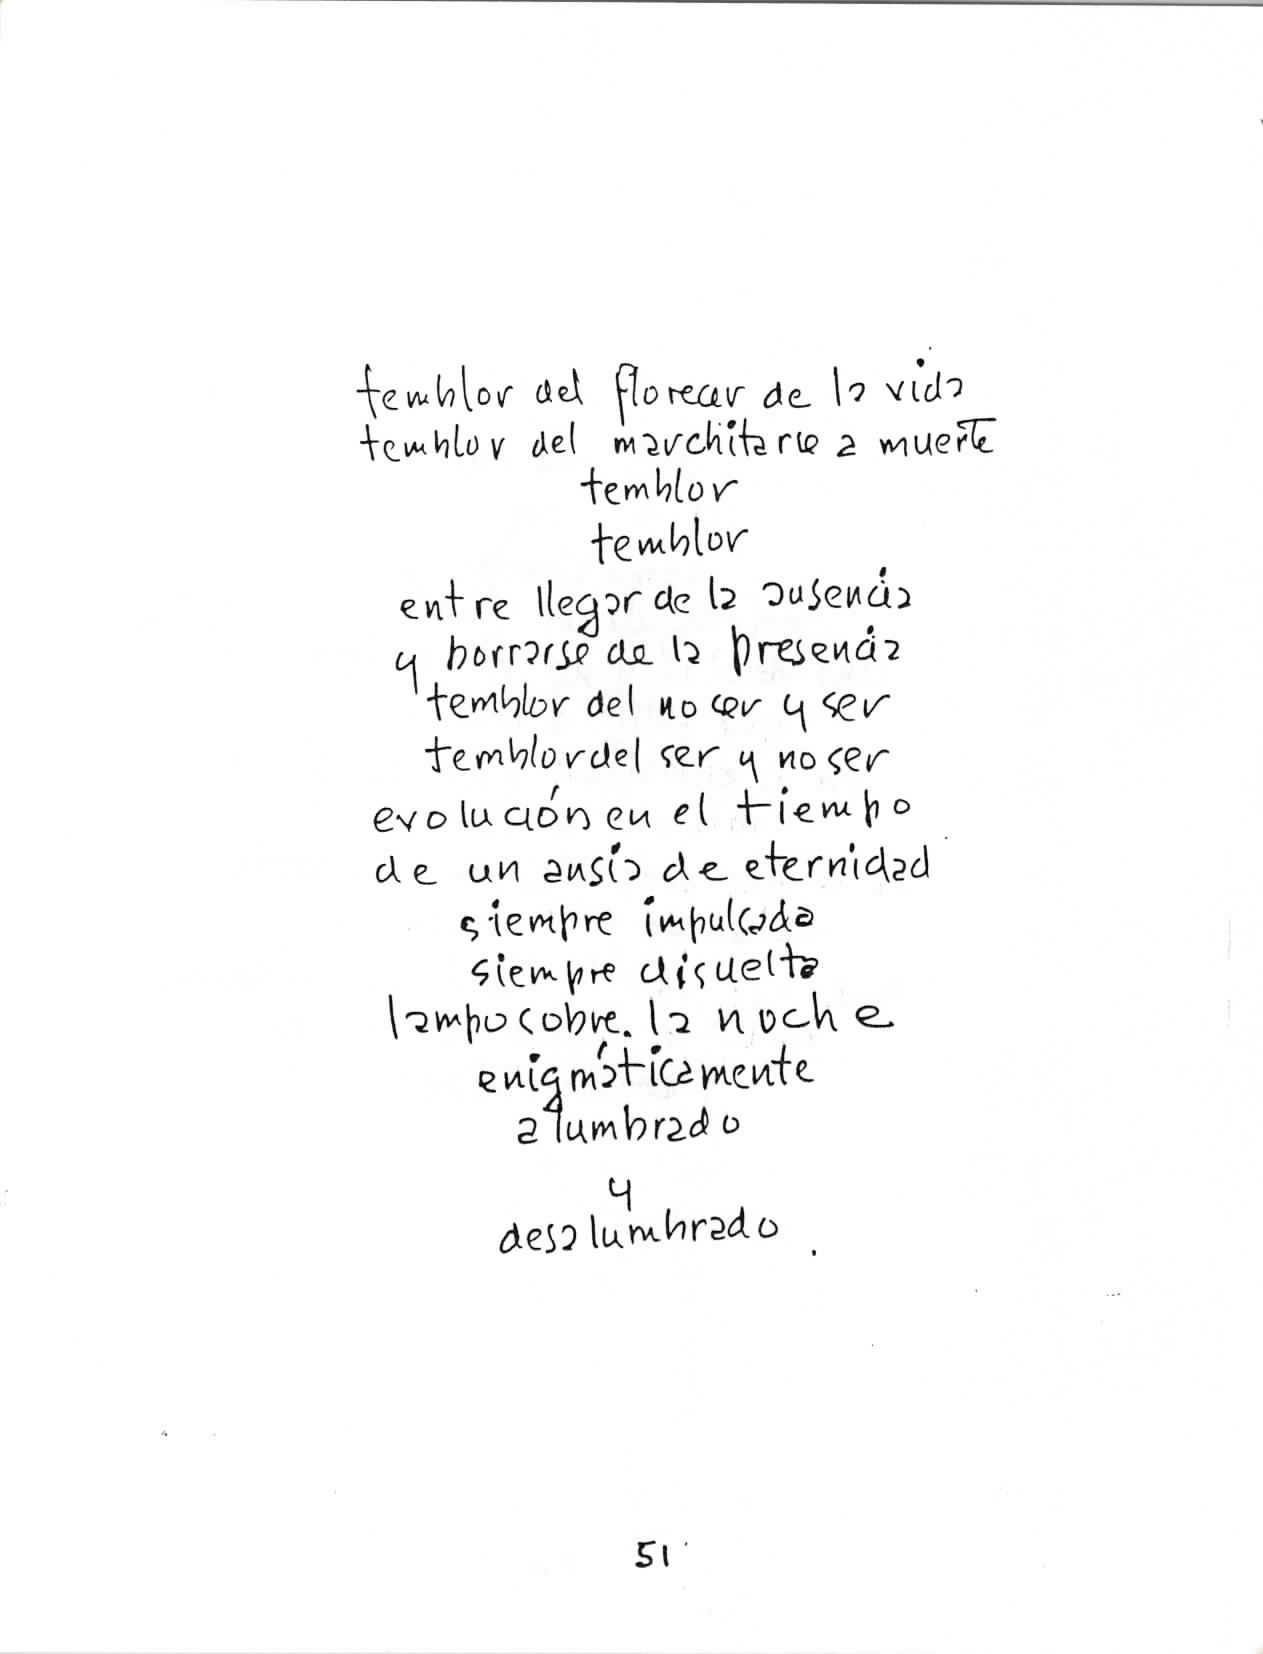 temblor del florecer de la vida
temblor del marchitarse a muerte
temblor
temblor
entre llegar de la ausencia
y borrarse de la presencia
temblor del no ser y ser
temblor del ser y no ser
evolución en el tiempo
de un ansia de eternidad
siempre impulsada
siempre disuelta
lampo sobre la noche
enigmáticamente
alumbrado
y
desalumbrado.
51